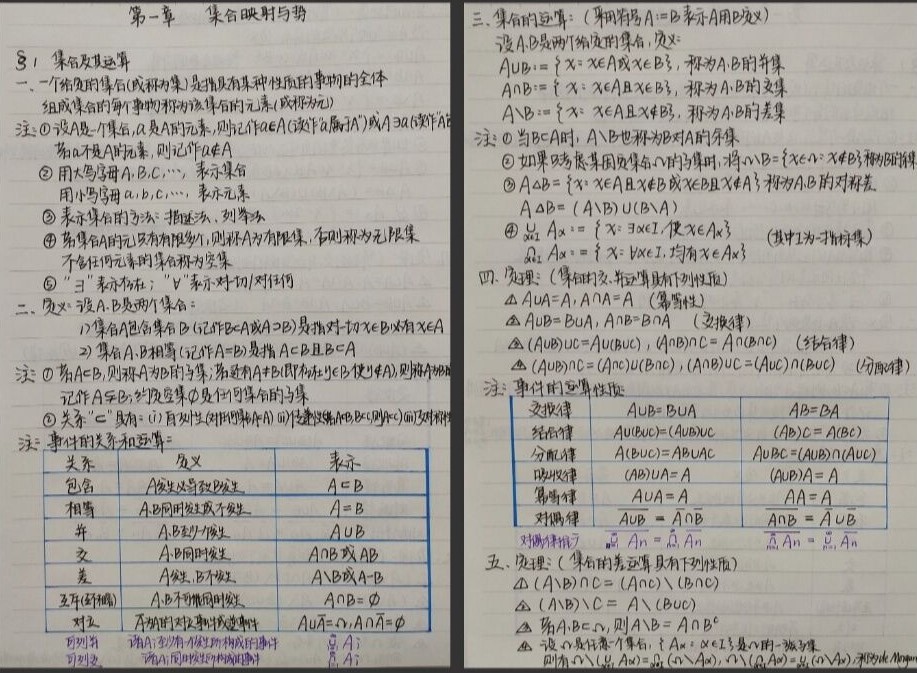 第一章 集合映射与势
§1 集合及其运算
一、一个给定的集合(或称为集)是指具有某种性质的事物的全体
组成集合的每个事物称为该集合的元素(或称为元)
注:①设A是一个集合,a是A的元素,则记作a∈A(读作"a属于A")或A∋a(读作"A
若a不是A的元素,则记作a∉A
②用大写字母A,B,C,…,表示集合
用小写字母a,b,c,…,表示元素
③表示集合的方法:描述法、列举法
④若集合A的元只有有限多个,则称A为有限集,否则称为无限集
不含任何元素的集合称为空集
⑤"∃"表示存在;"∀"表示对一切/对任何
二、定义:设A,B是两个集合:
1)集合A包含集合B(记作B⊂A或A⊃B)是指对一切x∈B必有x∈A
2)集合A,B相等(记作A=B)是指A⊂B且B⊂A
注:①若A⊂B,则称A为B的子集;若还有A≠B(即存在y∈B使y∉A),则称A为B的
记作A⊊B;约定空集∅是任何集合的子集
②关系"⊂"具有:(i)自反性(对任何集A⊂A)(ii)传递性(若A⊂B,B⊂C,则A⊂C)(iii)反对称性
注:事件的关系和运算:
关系 定义 表示
包含 A发生必导致B发生 A⊂B
相等 A,B同时发生或不发生 A=B
并 A,B至少一个发生 A∪B
交 A,B同时发生 A∩B或AB
差 A发生,B不发生 A\B或A-B
A,B不可能同时发生 A∩B=∅
对立 A∪Ā=Ω,A∩Ā=∅
可列并 诸Aᵢ至少有一个发生所构成的事件 ∪Aᵢ
可列交 诸Aᵢ同时发生所构成的事件 ∩Aᵢ
三、集合的运算:(采用符号A:=B表示A用B定义)
设A,B是两个给定的集合,定义:
A∪B:={x:x∈A或x∈B},称为A,B的并集
A∩B:={x:x∈A且x∈B},称为A,B的交集
A\B:={x:x∈A且x∉B},称为A,B的差集
注:①当B⊂A时,A\B也称为B对A的余集
②如果只考虑某固定集合Ω的子集时,将Ω\B={x∈Ω:x∉B}称为B的余集
③A△B={x:x∈A且x∉B或x∈B且x∉A}称为A,B的对称差
A△B=(A\B)∪(B\A)
④∪_{α∈I} Aα:={x:∃α∈I,使x∈Aα} (其中I为一指标集)
∩_{α∈I} Aα:={x:∀α∈I,均有x∈Aα}
四、定理:(集合的交、并运算具有下列性质)
△A∪A=A,A∩A=A (幂等性)
△A∪B=B∪A,A∩B=B∩A (交换律)
△(A∪B)∪C=A∪(B∪C),(A∩B)∩C=A∩(B∩C) (结合律)
△(A∪B)∩C=(A∩C)∪(B∩C),(A∩B)∪C=(A∪C)∩(B∪C) (分配律)
注:事件的运算性质:
交换律 A∪B=B∪A AB=BA
结合律 A∪(B∪C)=(A∪B)∪C (AB)C=A(BC)
分配律 A(B∪C)=AB∪AC A∪BC=(A∪B)∩(A∪C)
吸收律 (AB)∪A=A (A∪B)A=A
幂等律 A∪A=A AA=A
对偶律 A̅∪̅B̅=A̅∩B̅ A̅∩̅B̅=A̅∪B̅
对偶律推广
五、定理:(集合的差运算具有下列性质)
△(A\B)∩C=(A∩C)\(B∩C)
△(A\B)\C=A\(B∪C)
△若A,B⊂Ω,则A\B=A∩Bᶜ
△设Ω是任意一个集合,{Aα:α∈I}是Ω的一族子集
则有Ω\(∪Aα)=∩(Ω\Aα),Ω\(∩Aα)=∪(Ω\Aα),称为de Morgan